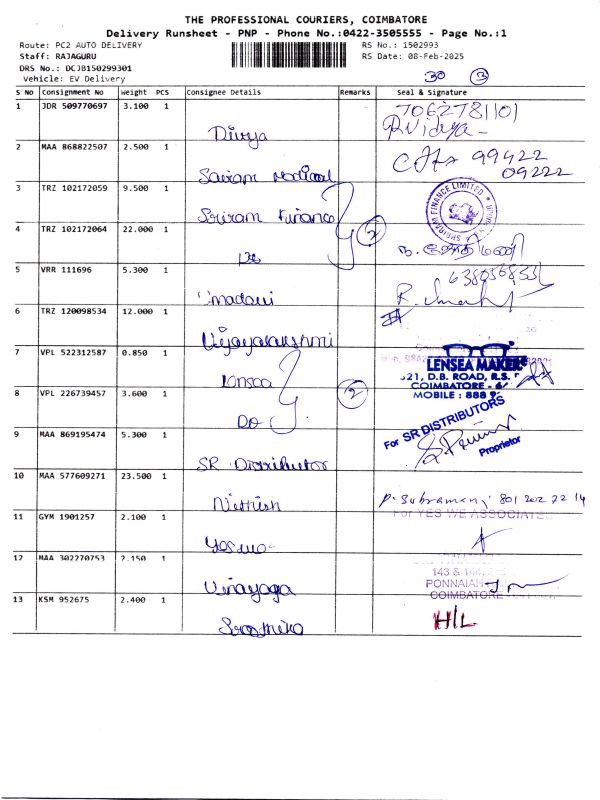 THE PROFESSIONAL COURIERS, COIMBATORE
Delivery Runsheet - PNP - Phone No.:0422-3505555 - Page No.:1
Route: PC2 AUTO DELIVERY RS No.: 1502993
Staff: RAJAGURU RS Date: 08-Feb-2025
DRS No.: DCJB150299301
Vehicle: EV Delivery 30 3
S NO Consignment No Weight PCS Consignee Details Remarks Seal & Signature
1 JDR 509770697 3.100 1 Divya 7062781101
2 MAA 868822507 2.500 1 Sairam Medical 99422
09222
3 TRZ 102172059 9.500 1 Sriram Finance SHRIRAM FINANCE LIMITED
4 TRZ 102172064 22.000 1 Do 2
5 VRR 111696 5.300 1 Umadavi
6 TRZ 120098534 12.000 1 Vijayalakshmi
7 VPL 522312587 0.850 1 Lensea LENSEA MAKER
21, D.B. ROAD, R.S.
COIMBATORE -
MOBILE : 888
8 VPL 226739457 3.600 1 Do 2
9 MAA 869195474 5.300 1 SR Distributor For SR DISTRIBUTORS
Proprietor
10 MAA 577609271 23.500 1 Nithish P. Subramani, 801 202 22 14
11 GYM 1901257 2.100 1 For YES WE ASSOCIATE
12 MAA 302270753 2.150 1 Vinayaga 143 &
PONNAIAH
COIMBATORE
13 KSM 952675 2.400 1 H/L